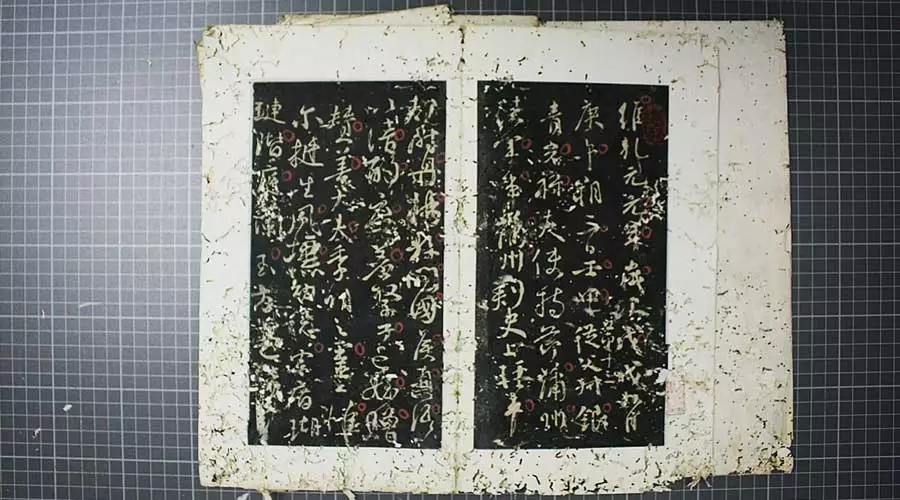 維乾元元年歲次戊戌九月
庚午朔三日壬申第十三從父叔銀
青光祿夫使持節蒲州
諸軍事蒲州刺史上輕車
都尉丹楊縣開國侯真卿
以清酌庶羞祭于亡姪贈
贊善大夫季明之靈惟
爾挺生夙標幼德宗廟瑚
璉階庭蘭玉